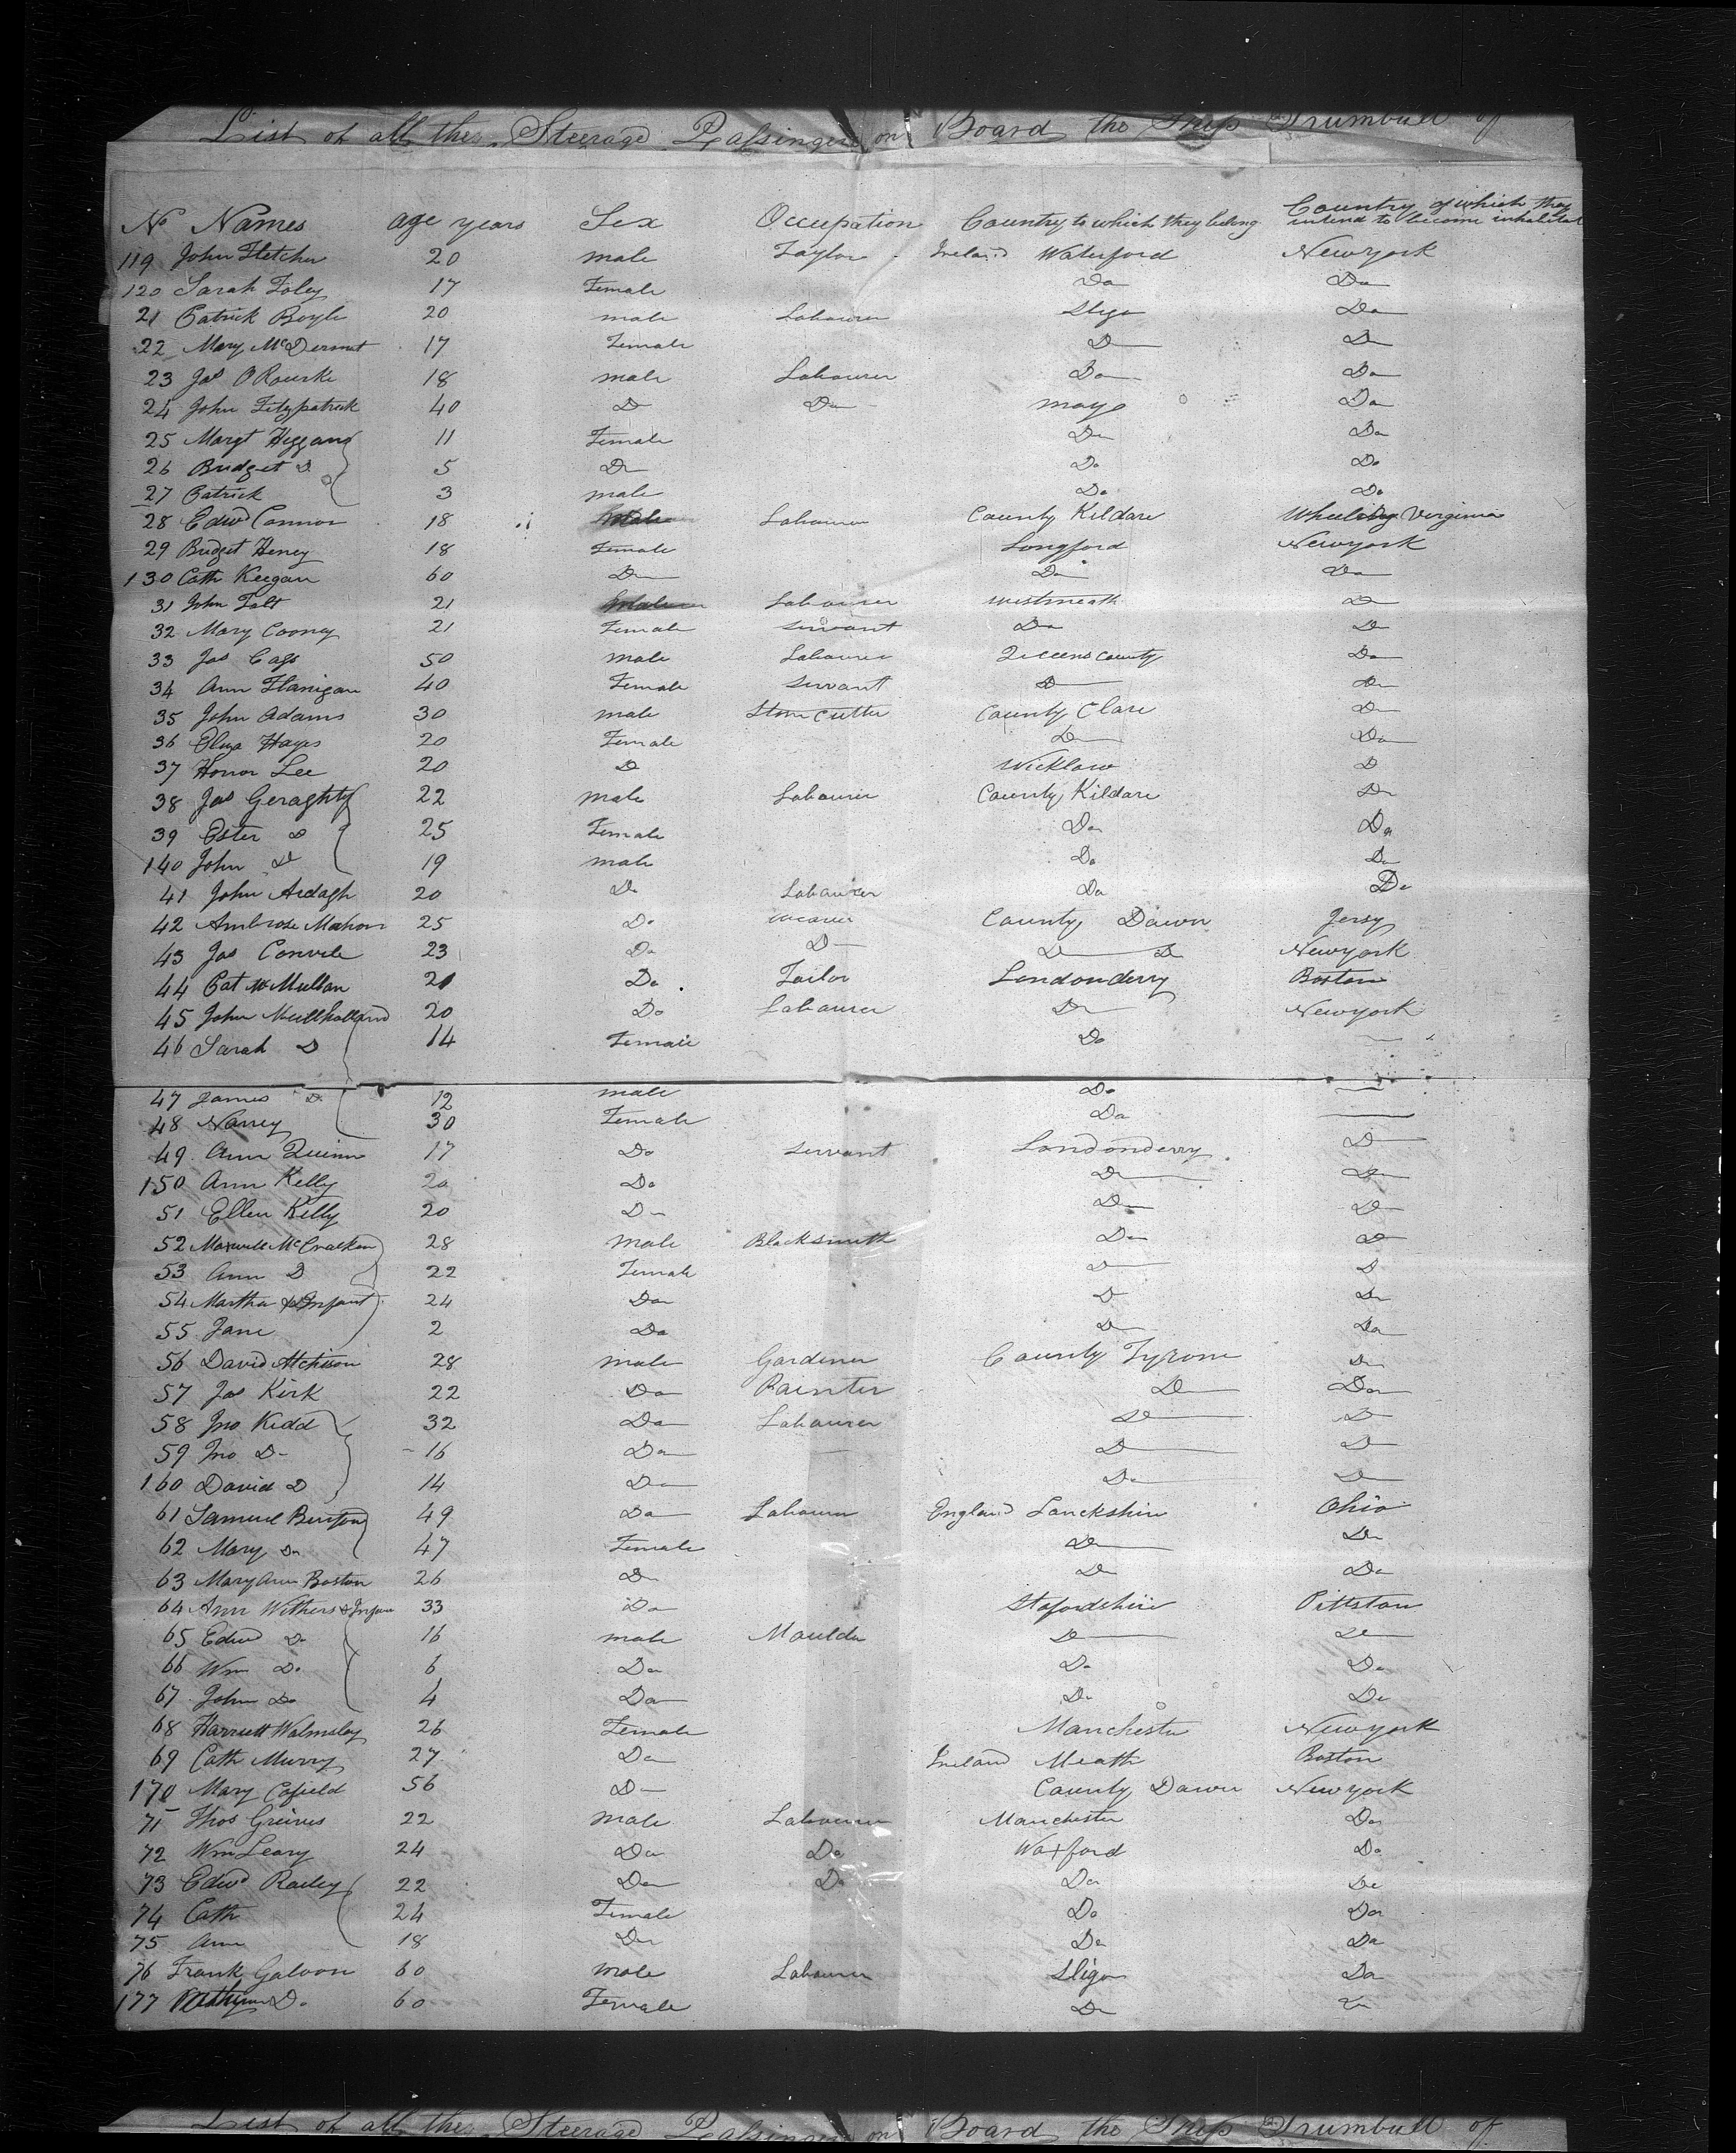 List of all the Steerage Passingers on Board the Ship Trumbull of
No Names age years Sex Occupation Country to which they belong Country of which they intend to become inhabitat
119 John Fletcher 20 male Taylor Ireland Waterford Newyork
120 Sarah Foley 17 Female Do Do
21 Patrick Boyle 20 male Labourer Sligo Do
22 Mary McDermot 17 Female Do Do
23 Jas O Rourke 18 male Labourer Do Do
24 John Fitzpatrick 40 Do Do mayo Do
25 Margt Heggans 11 Female Do Do
26 Bridget D 5 Do Do Do
27 Patrick Do 3 male Do Do
28 Edwd Connor 18 Male Labourer County Kildare Wheeling Virginia
29 Bridget Heney 18 Female Longford Newyork
130 Cath Keegan 60 Do Do Do
31 John 21 Male Labourer westmeath Do
32 Mary Cooney 21 Female servant Do Do
33 Jas 50 male Labourer Queens county Do
34 Ann Flanigan 40 Female servant D Do
35 John Adams 30 male Stone cutter County Clare Do
36 Eliza Hayes 20 Female D Do
37 Honor Lee 20 D Wicklow D
38 Jas Geraghty 22 male Labourer County Kildare Do
39 Ester Do 25 Female Do Do
140 John Do 19 male Do Do
41 John Ardagh 20 Do Labourer Do Do
42 Ambrose Mahon 25 Do weaver County Dawn Jersy
43 Jas Convele 23 Do D D D Newyork
44 Pat McMullan 21 Do Tailor Londonderry Boston
45 John Mullholland 20 Do Labourer Do Newyork
46 Sarah D 14 Female Do
47 James D 12 male Do
48 Nancy 30 Female Do
49 Ann Quinn 17 Do servant Londonderry D
150 Ann Kelly 20 Do D Do
51 Ellen Kelly 20 Do Do D
52 Maxwell McCracken 28 male Blacksmith Do D
53 Ann D 22 Female D D
54 Martha & Infant 24 Do D Do
55 Jane 2 Do D Do
56 David Atchison 28 male Gardener County Tyrone Do
57 Jas Kirk 22 Do Painter D Do
58 Jno Kidd 32 Do Labourer D D
59 Jno D 16 Do D D
160 David D 14 Do Do D
61 Samuel Benson 49 Do Labourer England Lanckshire Ohio
62 Mary Do 47 Female D Do
63 Mary Ann Boston 26 Do D Do
64 Ann Withers & Infan 33 Do Stafordshire Pittston
65 Edwd Do 16 male Moulder D D
66 Wm Do 6 Do Do Do
67 John Do 4 Do Do Do
68 Harriett Walmsley 26 Female Manchester Newyork
69 Cath Murry 27 Do Ireland Meath Boston
170 Mary Cofield 56 D County Dawn Newyork
71 Thos Greives 22 male Labourer Manchester Do
72 Wm Leary 24 Do Do Waxford Do
73 Edwd Railey 22 Do Do Do Do
74 Cath 24 Female Do Do
75 Ann 18 Do Do Do
76 Frank Galoon 60 male Labourer Sligo Do
177 Do 60 Female Do Do
List of all the Steerage Passingers on Board the Ship Trumbull of